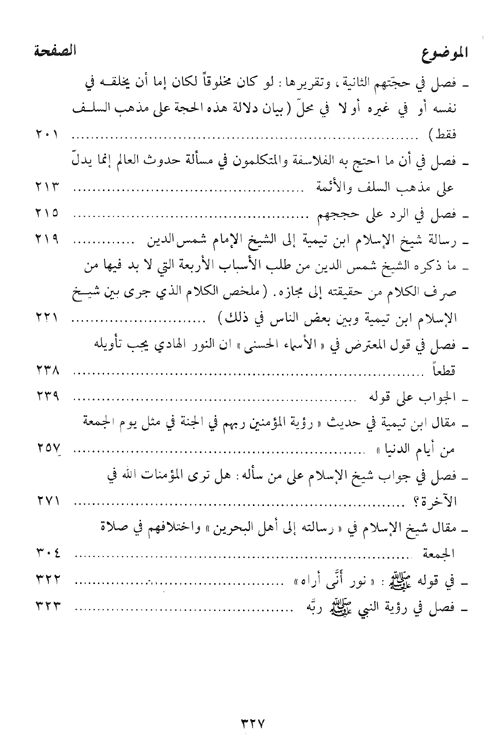 الموضوع الصفحة
ـ فصل في حجّتهم الثانية، وتقريرها: لو كان مخلوقاً لكان إما أن يخلقه في
نفسه أو في غيره أو لا في محلّ (بيان دلالة هذه الحجة على مذهب السلف
فقط) ........................................ ٢٠١
ـ فصل في أن ما احتج به الفلاسفة والمتكلمون في مسألة حدوث العالم إنما يدلّ
على مذهب السلف والأئمة .............................. ٢١٣
ـ فصل في الرد على حججهم .............................. ٢١٥
ـ رسالة شيخ الإسلام ابن تيمية إلى الشيخ الإمام شمس الدين ............. ٢١٩
ـ ما ذكره الشيخ شمس الدين من طلب الأسباب الأربعة التي لا بد فيها من
صرف الكلام من حقيقته إلى مجازه. (ملخص الكلام الذي جرى بين شيخ
الإسلام ابن تيمية وبين بعض الناس في ذلك) ................. ٢٢١
ـ فصل في قول المعترض في «الأسماء الحسنى» ان النور الهادي يجب تأويله
قطعاً ........................................ ٢٣٨
ـ الجواب على قوله .............................. ٢٣٩
ـ مقال ابن تيمية في حديث «رؤية المؤمنين ربهم في الجنة في مثل يوم الجمعة
من أيام الدنيا» .............................. ٢٥٧
ـ فصل في جواب شيخ الإسلام على من سأله: هل ترى المؤمنات الله في
الآخرة؟ ........................................ ٢٧١
ـ مقال شيخ الإسلام في «رسالته إلى أهل البحرين» واختلافهم في صلاة
الجمعة ........................................ ٣٠٤
ـ في قوله ﷺ: «نور أنَّى أراه» .............................. ٣٢٢
ـ فصل في رؤية النبي ﷺ ربَّه .............................. ٣٢٣
٣٢٧